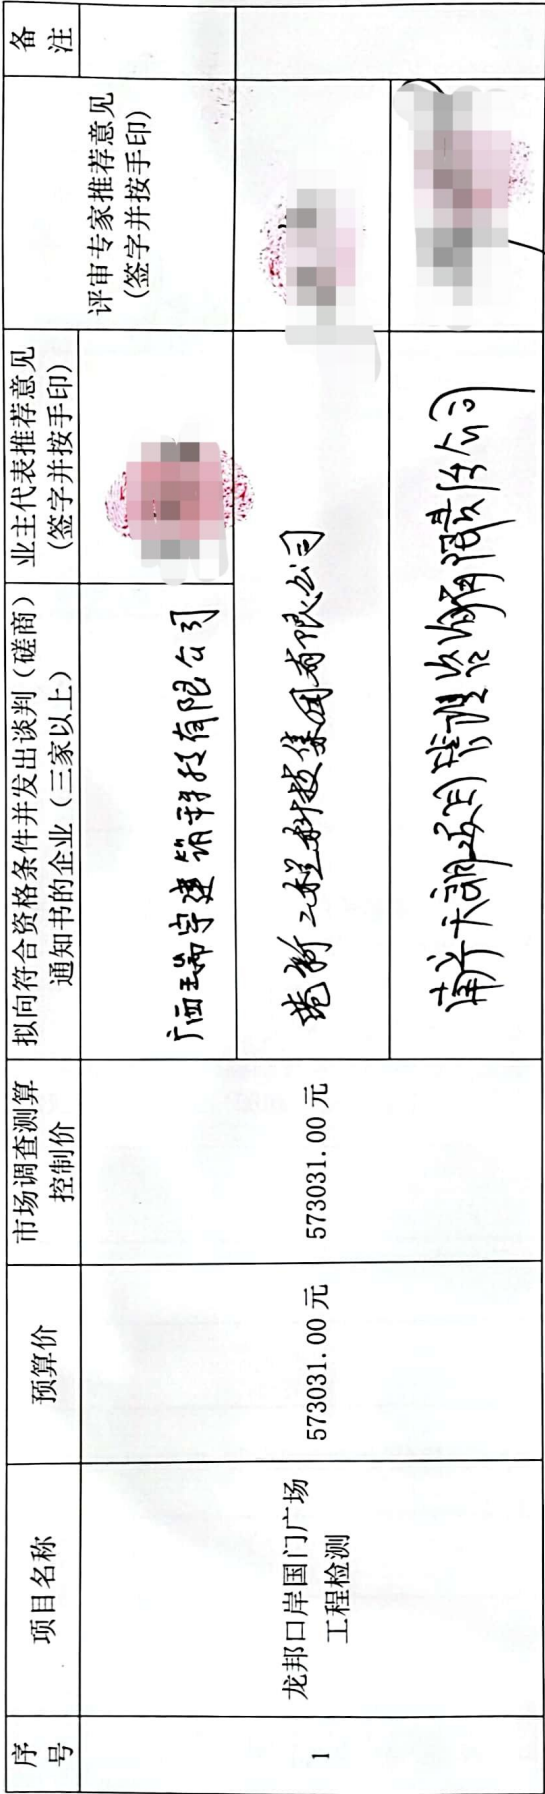 序
号
项目名称
预算价
市场调查测算
控制价
拟向符合资格条件并发出谈判（磋商）
通知书的企业（三家以上）
业主代表推荐意见
（签字并按手印）
评审专家推荐意见
（签字并按手印）
备
注
1
龙邦口岸国门广场
工程检测
573031.00 元
573031.00 元
广西瑞宇建筑科技有限公司
工程科技集团有限公司
项目管理咨询有限责任公司